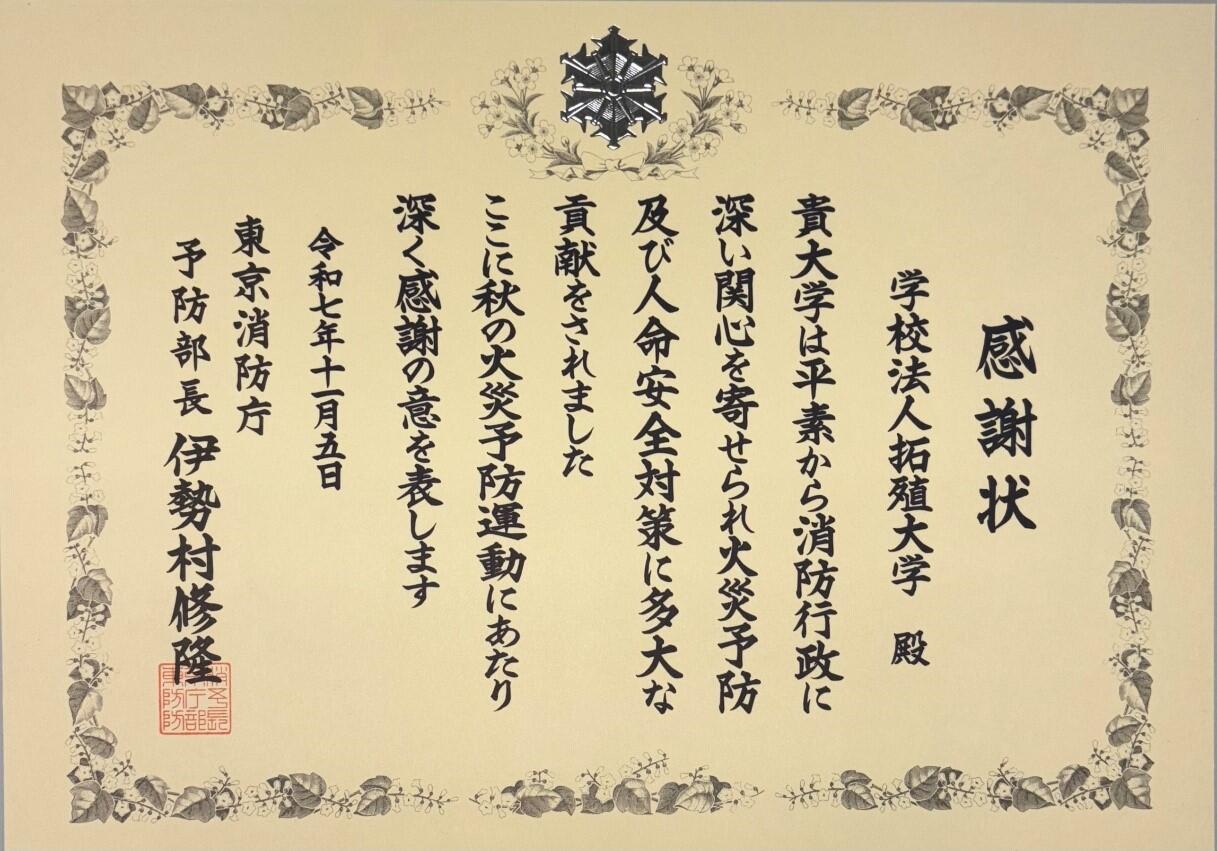 感謝状
学校法人拓殖大学 殿
貴大学は平素から消防行政に
深い関心を寄せられ火災予防
及び人命安全対策に多大な
貢献をされました
ここに秋の火災予防運動にあたり
深く感謝の意を表します
令和七年十一月五日
東京消防庁
予防部長 伊勢村修隆